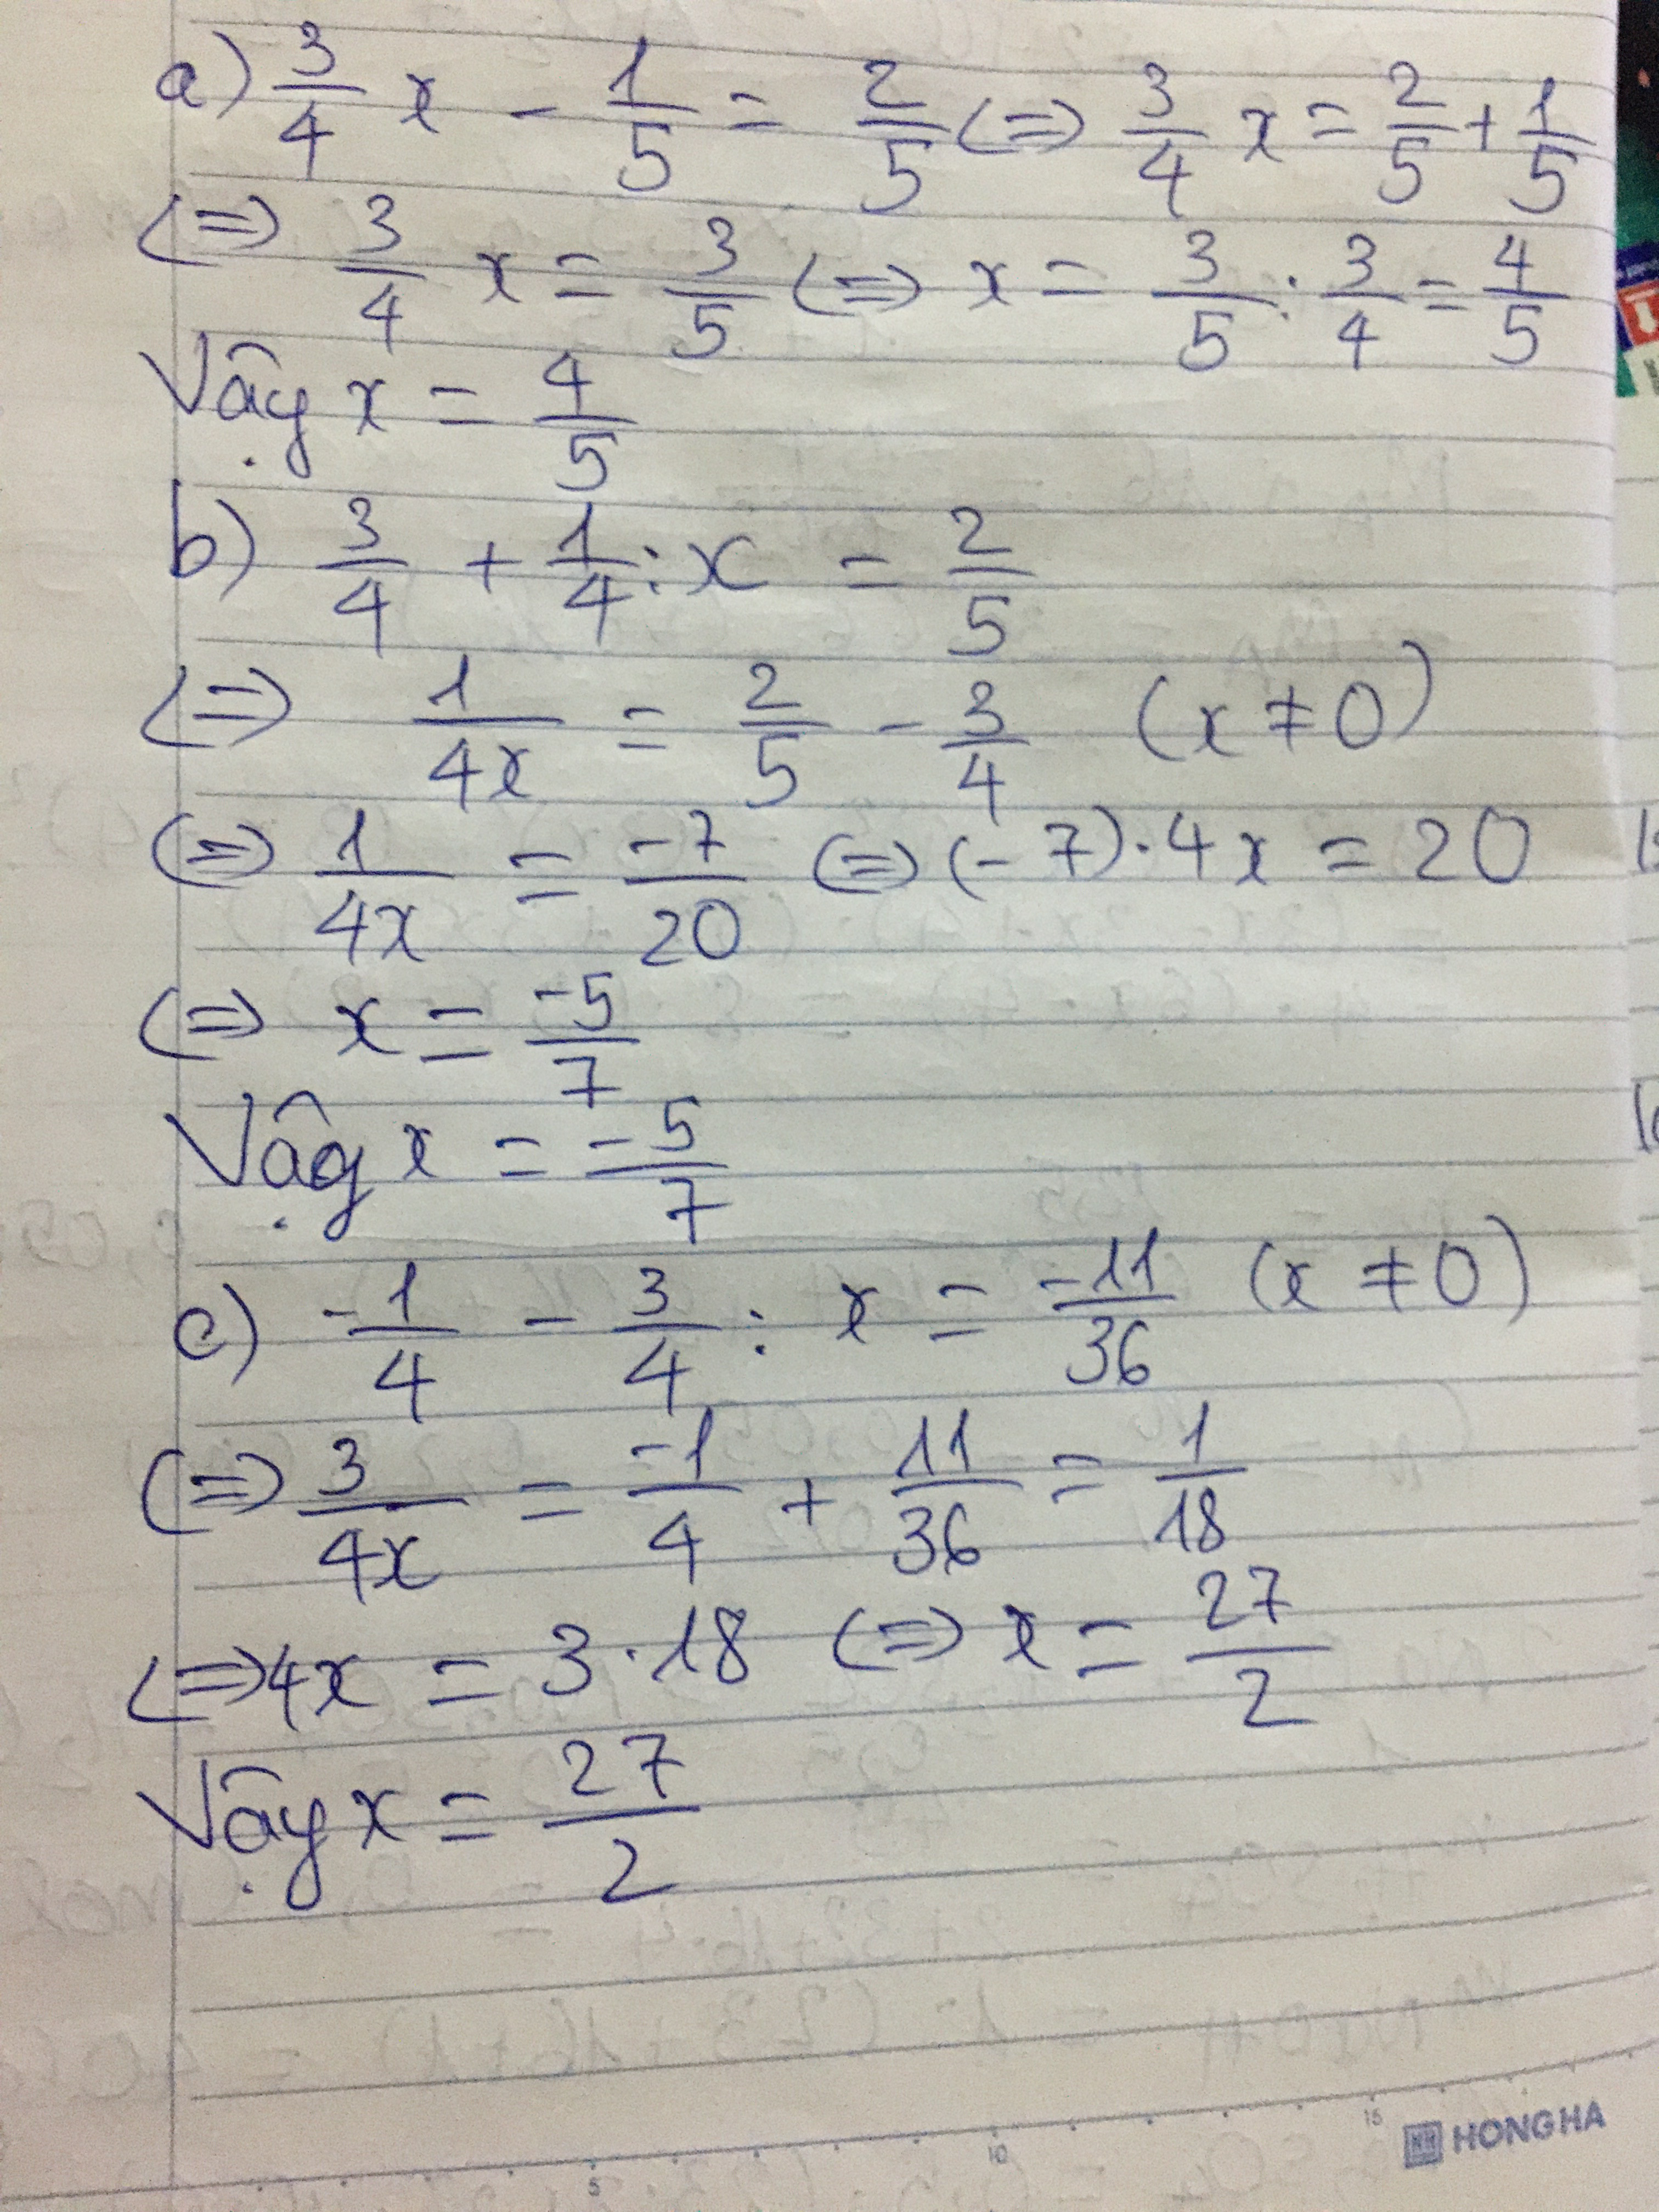 a) 3/4 x - 1/5 = 2/5 (=) 3/4 x = 2/5 + 1/5
(=) 3/4 x = 3/5 (=) x = 3/5 : 3/4 = 4/5
Vậy x = 4/5
b) 3/4 + 1/4 : x = 2/5
(=) 1/4x = 2/5 - 3/4 (x ≠ 0)
(=) 1/4x = -7/20 (=) (-7).4x = 20
(=) x = -5/7
Vậy x = -5/7
c) -1/4 - 3/4 : x = -11/36 (x ≠ 0)
(=) 3/4x = -1/4 + 11/36 = 1/18
(=) 4x = 3.18 (=) x = 27/2
Vậy x = 27/2
5 10 15
HONG HA